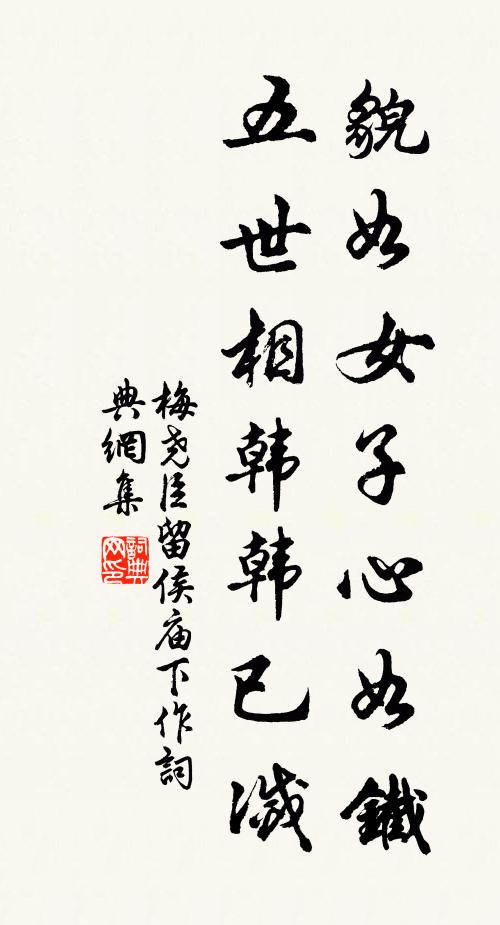 貌如女子心如鐵
五世相韩韩已滅
梅尧臣留侯庙下作詞
典網集
詞典网印